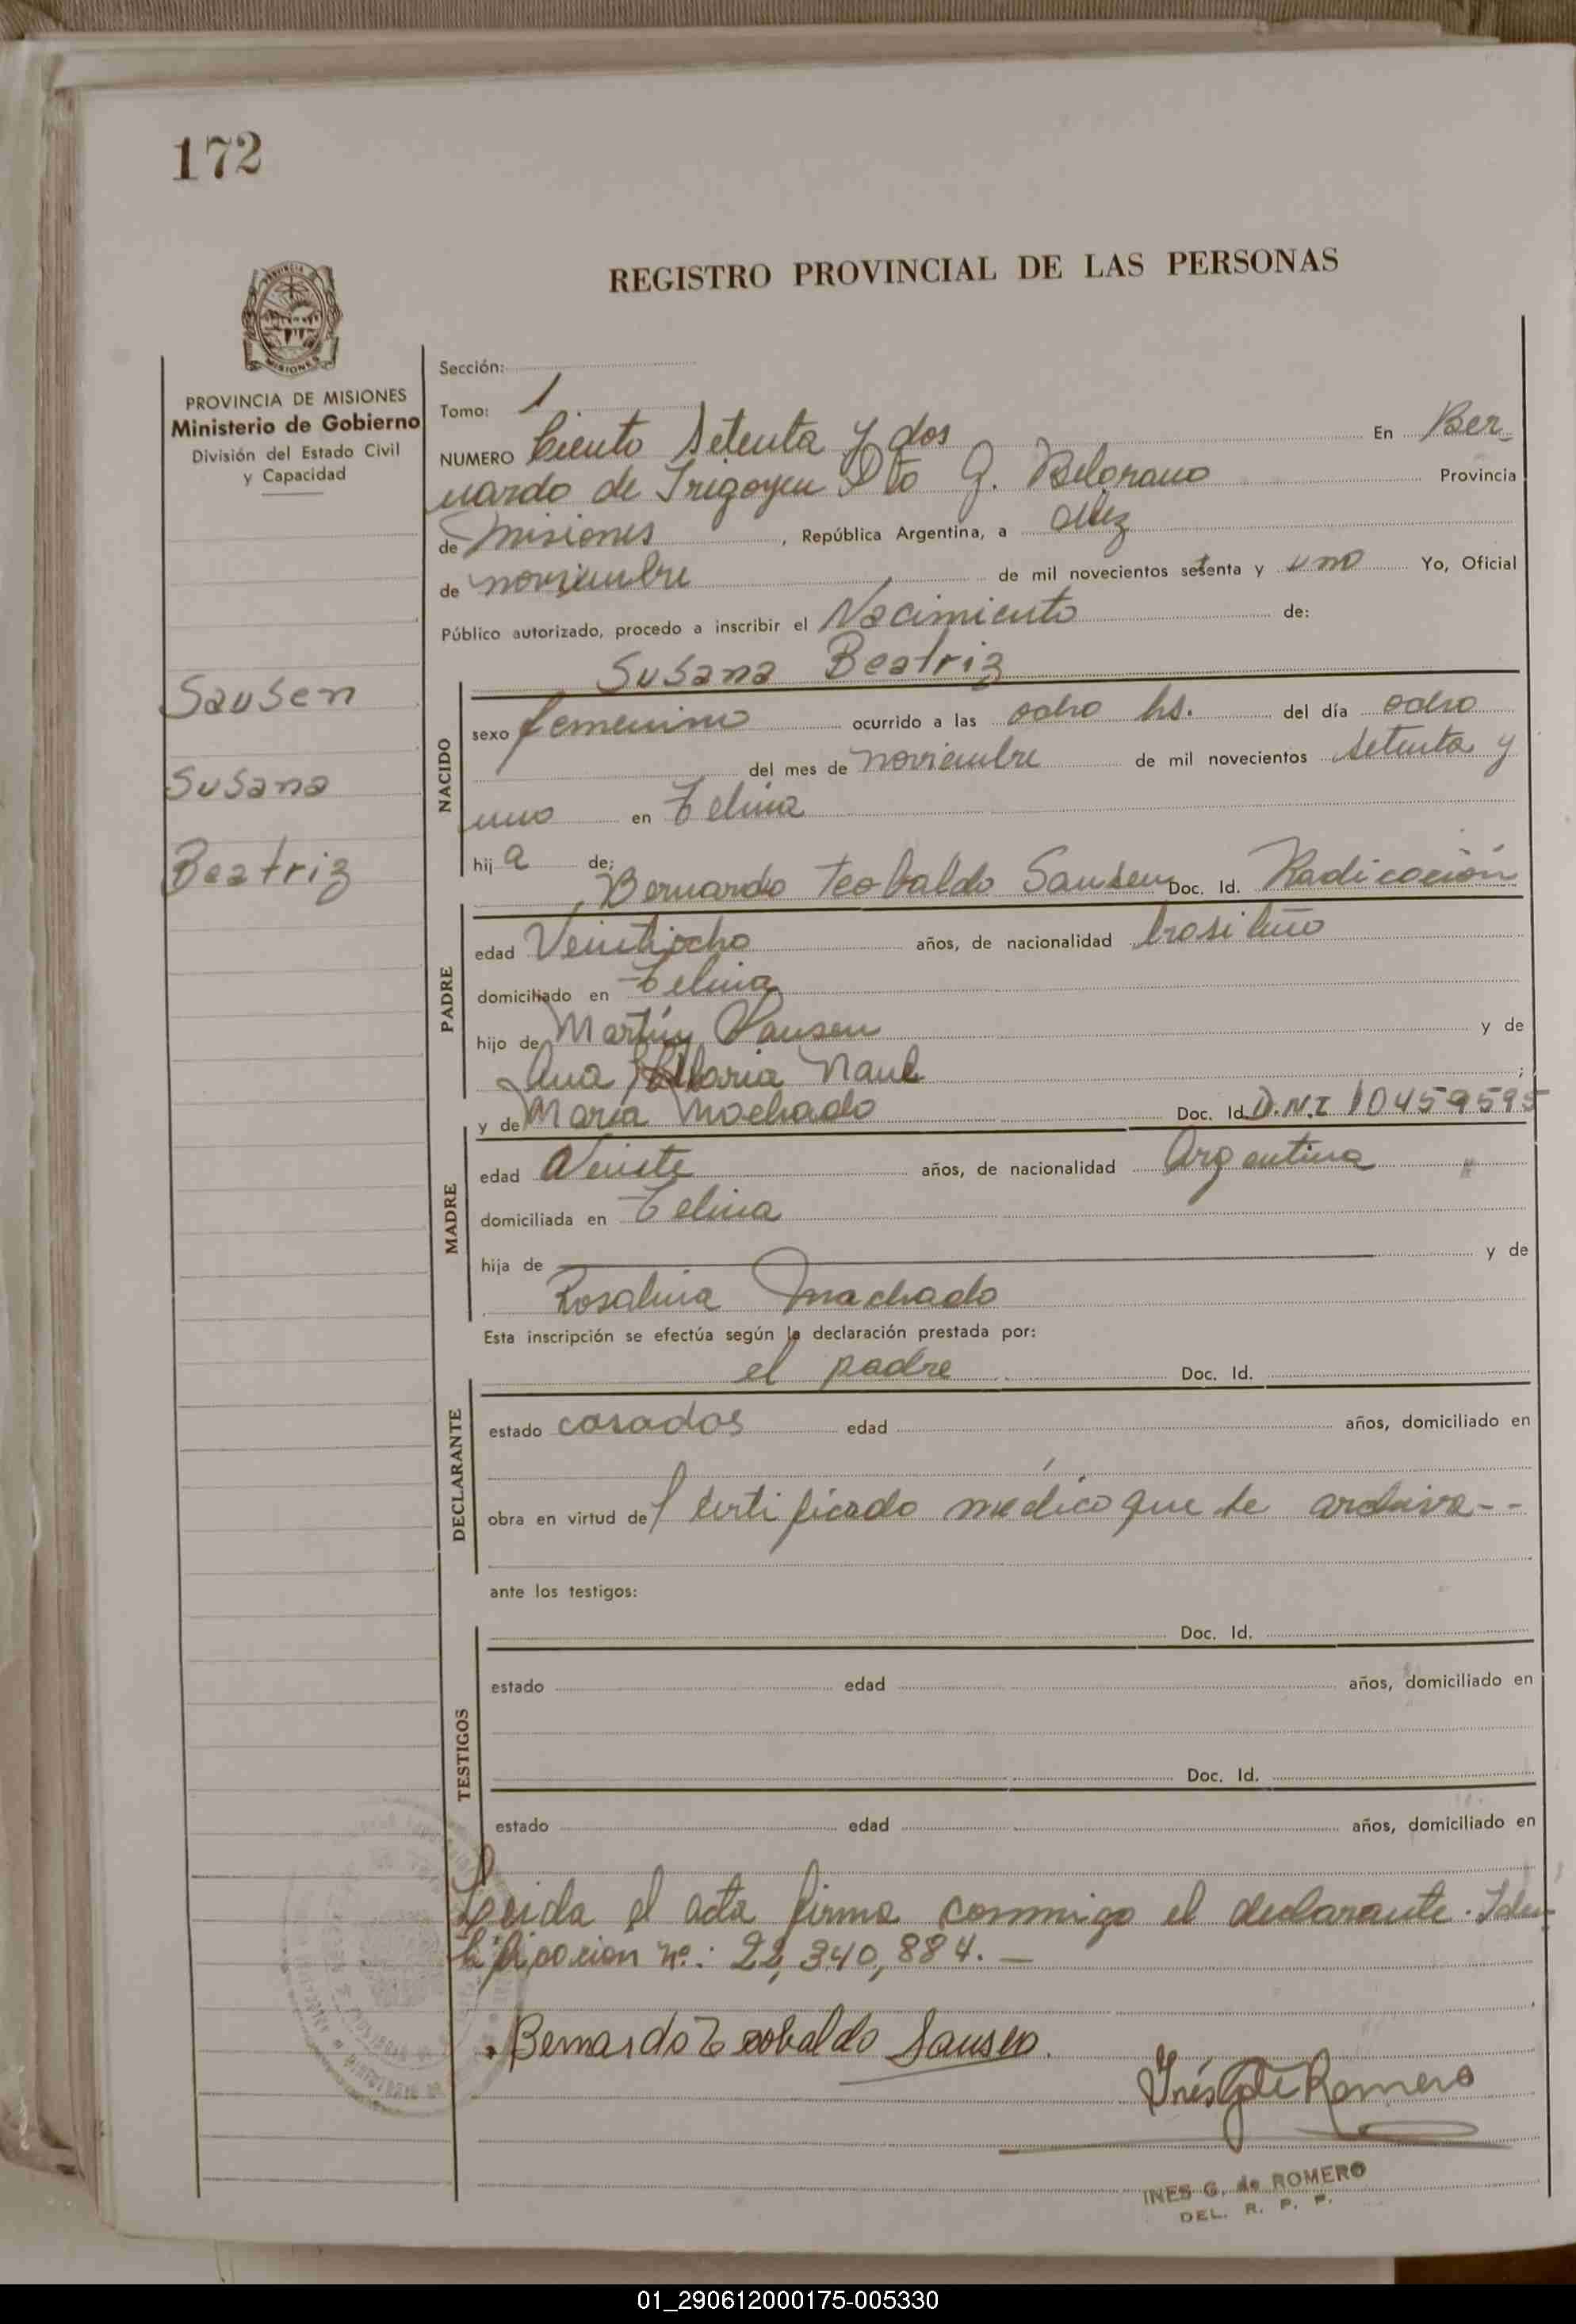 172
REGISTRO PROVINCIAL DE LAS PERSONAS
PROVINCIA DE MISIONES
Ministerio de Gobierno
División del Estado Civil
y Capacidad
Sausen
Susana
Beatriz
Sección:
Tomo: 1
NUMERO Ciento Setenta y dos En Ber-
nardo de Irigoyen Dto G. Belgrano Provincia
de Misiones, República Argentina, a diez
de noviembre de mil novecientos setenta y uno Yo, Oficial
Público autorizado, procedo a inscribir el Nacimiento de:
Susana Beatriz
NACIDO
sexo femenino ocurrido a las ocho hs. del día ocho
del mes de noviembre de mil novecientos setenta y
uno en
hija de:
Bernardo Teobaldo Sausen Doc. Id. Radicación
PADRE
edad Veintiocho años, de nacionalidad brasileño
domiciliado en
hijo de Martín Sausen y de
Ana Naul;
y de María Machado Doc. Id. D.N.I 10459595
MADRE
edad Veinte años, de nacionalidad Argentina
domiciliada en
hija de y de
Rosalina Machado
Esta inscripción se efectúa según la declaración prestada por:
el padre Doc. Id.
DECLARANTE
estado casados edad años, domiciliado en
obra en virtud de certificado médico que se archiva--
ante los testigos:
Doc. Id.
TESTIGOS
estado edad años, domiciliado en
Doc. Id.
estado edad años, domiciliado en
Leida el acta firma conmigo el declarante. Iden
tificacion nº: 22,340,884.—
Bernardo Teobaldo Sausen.
Inés G de Romero
INES G. de ROMERO
DEL. R. P. P.
01_290612000175-005330